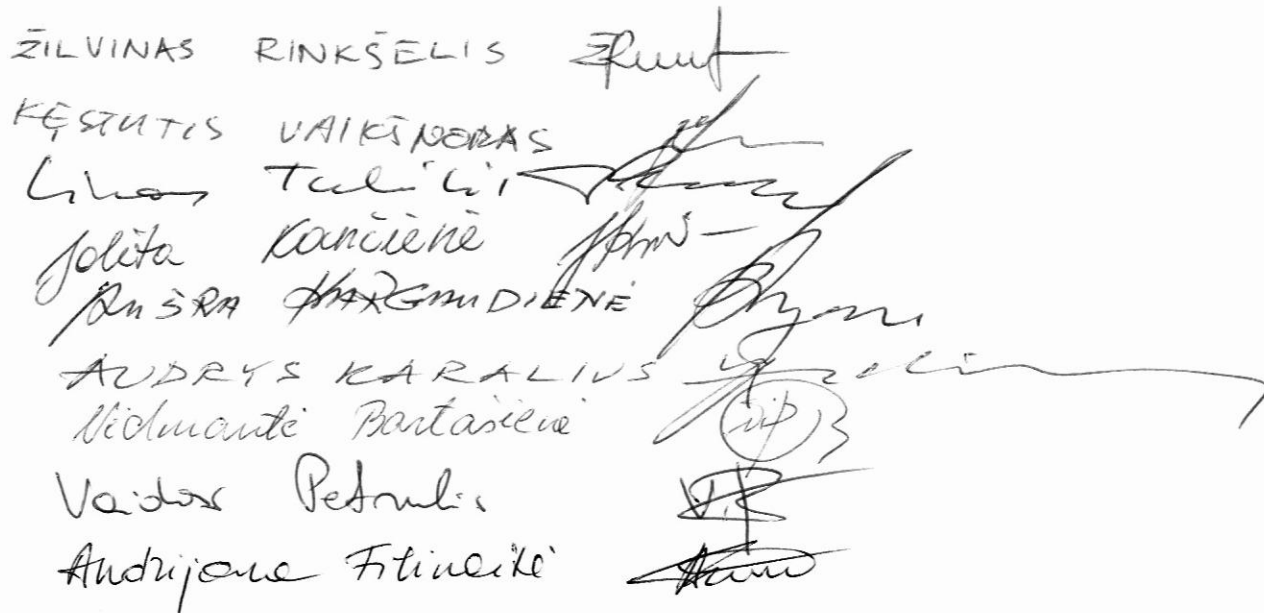 ŽILVINAS RINKŠELIS
KĘSTUTIS VAIKŠNORAS
Linas
Jolita Kančienė
AUŠRA
AUDRYS KARALIUS
Vidmantė Bartašienė
Vaidas Petrulis
Andrijana Filinaitė